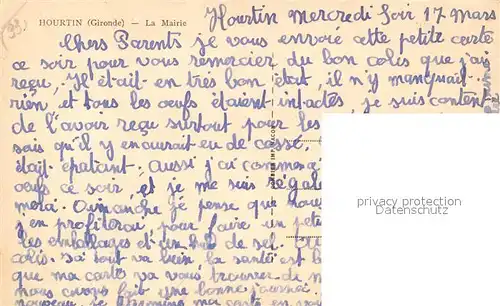 HOURTIN (Gironde) — La Mairie
Hourtin mercredi soir 17 mars
Chers Parents je vous envoie cette petite carte
ce soir pour vous remercier du bon colis que j'ai
reçu, Il était en très bon état, il n'y manquait
rien et tous les oeufs étaient intactés, je suis content
de l'avoir reçu surtout pour les
sais qu'il y en aurait eu de cassé,
était épatant, aussi j'ai commencé
oeufs ce soir, et je me suis régalé
merci. Dimanche je pense que nous
j'en profiterai pour faire un peti
les emballages et un peu de sel.
colis. tout va bien la santé est b
que ma carte va vous trouver de m
nous avons fait une bonne
nouveau, je termine ma carte en vous
privacy protection
DatacenterSorglos.de